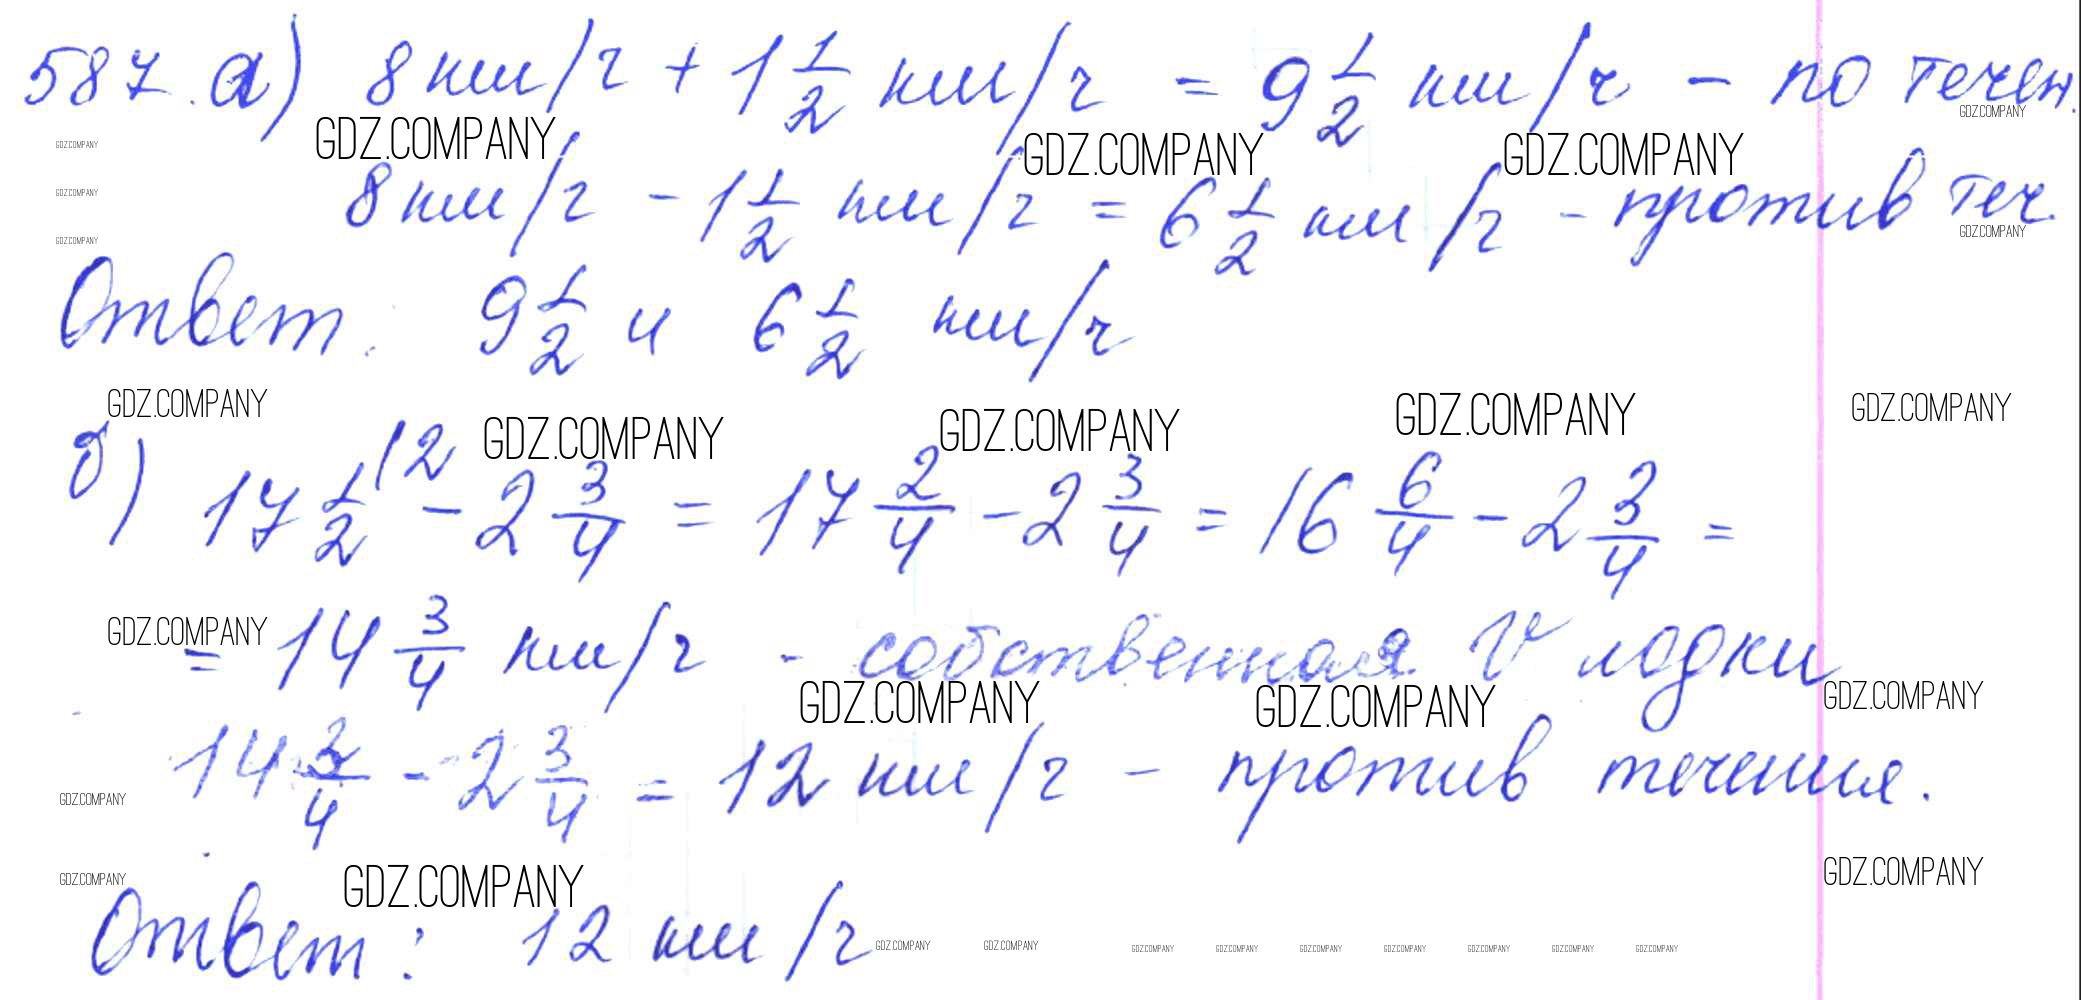 587. а) 8 км/ч + 1 1/2 км/ч = 9 1/2 км/ч – по течен.
GDZ.COMPANY
GDZ.COMPANY GDZ.COMPANY GDZ.COMPANY
GDZ.COMPANY
GDZ.COMPANY
8 км/ч – 1 1/2 км/ч = 6 1/2 км/ч – против теч.
GDZ.COMPANY GDZ.COMPANY
Ответ: 9 1/2 и 6 1/2 км/ч
GDZ.COMPANY GDZ.COMPANY GDZ.COMPANY GDZ.COMPANY GDZ.COMPANY
б) 17 1/2 (2 – 2 3/4 = 17 2/4 – 2 3/4 = 16 6/4 – 2 3/4 =
GDZ.COMPANY
= 14 3/4 км/ч – собственная V лодки
GDZ.COMPANY GDZ.COMPANY GDZ.COMPANY
14 3/4 – 2 3/4 = 12 км/ч – против течения.
GDZ.COMPANY
GDZ.COMPANY GDZ.COMPANY GDZ.COMPANY
Ответ: 12 км/ч
GDZ.COMPANY GDZ.COMPANY GDZ.COMPANY GDZ.COMPANY GDZ.COMPANY GDZ.COMPANY GDZ.COMPANY GDZ.COMPANY GDZ.COMPANY